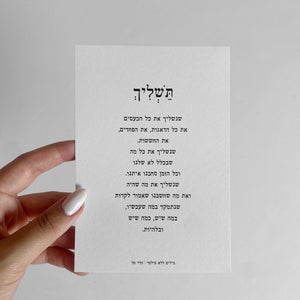 תַּשְׁלִיךְ
שנשליך את כל הכעסים
את כל הדאגות, את הפחדים,
את החששות.
שנשליך את כל מה
שבכלל לא שלנו
וכל הזמן סחבנו איתנו.
שנשליך את מה שהיה
ואת מה שחשבנו שאמור לקרות
שנתמקד במה שעכשיו,
במה שיש, כמה שיש
ובלהיות.
מילים ללא פילטר